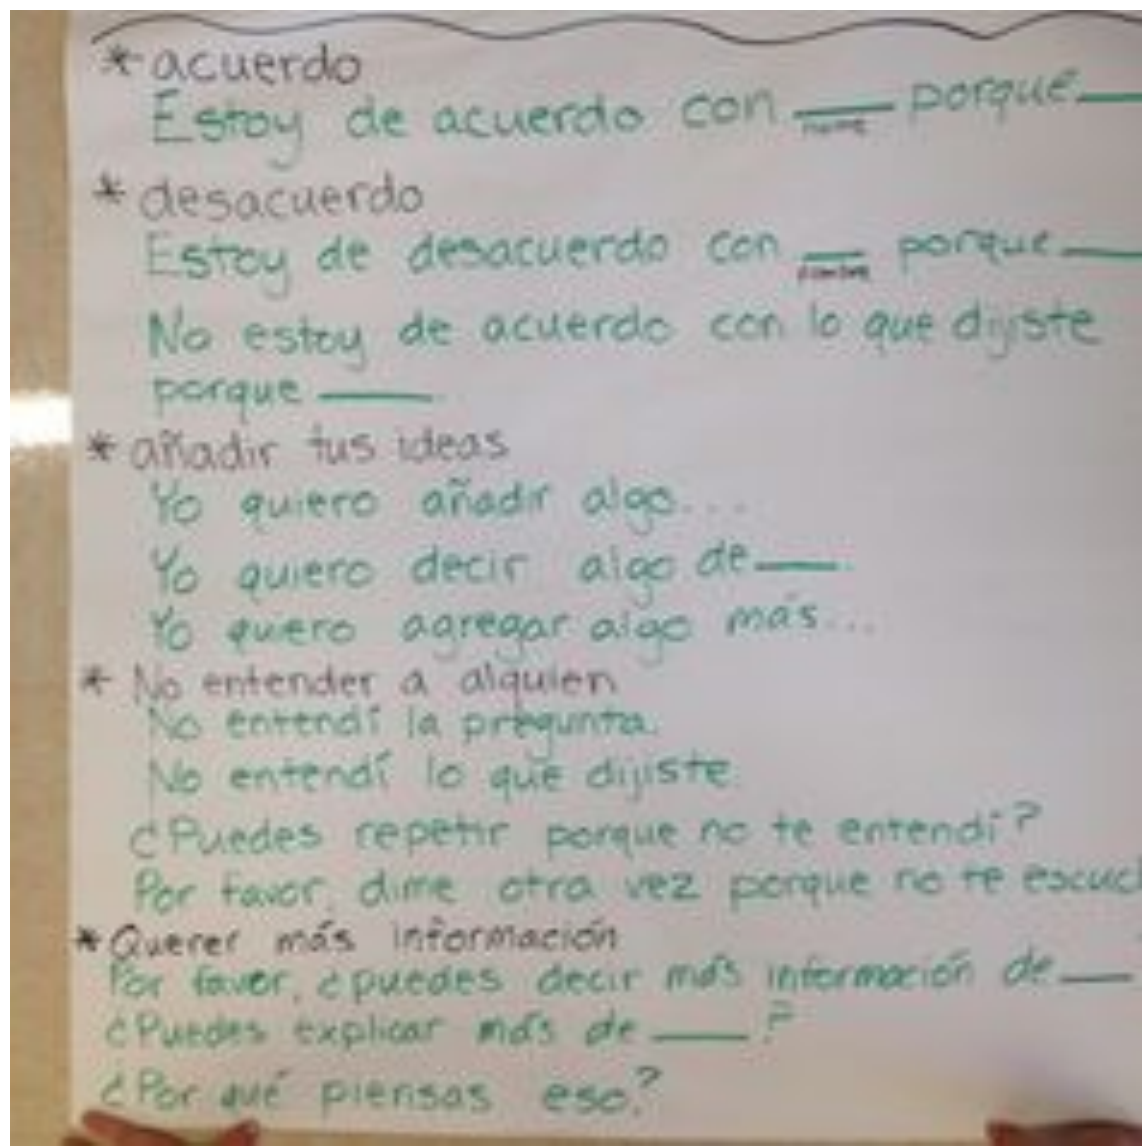 * acuerdo
Estoy de acuerdo con ____ porque ____
nombre
* desacuerdo
Estoy de desacuerdo con ____ porque ____
nombre
No estoy de acuerdo con lo que dijiste
porque ____
* añadir tus ideas
Yo quiero añadir algo...
Yo quiero decir algo de ____.
Yo quiero agregar algo más...
* No entender a alguien
No entendí la pregunta.
No entendí lo que dijiste.
¿Puedes repetir porque no te entendí?
Por favor, dime otra vez porque no te escuc
* Querer más información
Por favor, ¿puedes decir más información de ____
¿Puedes explicar más de ____?
¿Por qué piensas eso?